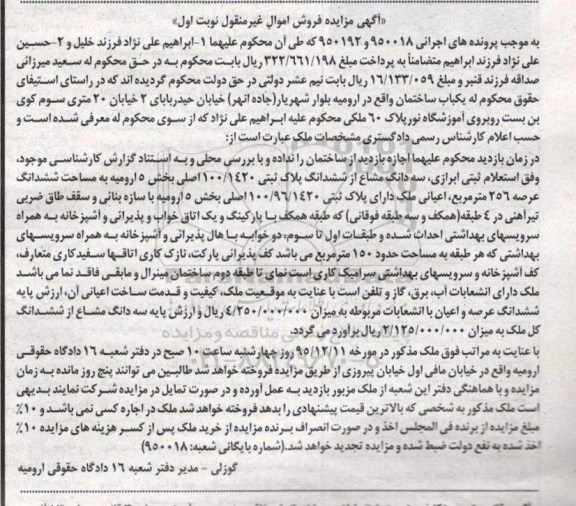 «آگهی مزایده فروش اموال غیرمنقول نوبت اول»
به موجب پرونده های اجرائی ۹۵۰۰۱۸ و ۹۵۰۱۹۲ که طی آن محکوم علیهما ۱-ابراهیم علی نژاد فرزند خلیل و ۲-حسین
علی نژاد فرزند ابراهیم متضامناً به پرداخت مبلغ ۳۲۲/۶۶۱/۱۹۸ ریال بابت محکوم به در حق محکوم له سعید میرزائی
صداقه فرزند قنبر و مبلغ ۱۶/۱۳۳/۰۵۹ ریال بابت نیم عشر دولتی در حق دولت محکوم گردیده اند که در راستای استیفای
حقوق محکوم له یکباب ساختمان واقع در ارومیه بلوار شهریار(جاده انهر) خیابان حیدربابای ۲ خیابان ۲۰ متری سوم کوی
بن بست روبروی آموزشگاه نور پلاک ۶۰ ملکی محکوم علیه ابراهیم علی نژاد که از سوی محکوم له معرفی شده است و
حسب اعلام کارشناس رسمی دادگستری مشخصات ملک عبارت است از:
در زمان بازدید محکوم علیهما اجازه بازدید از ساختمان را نداده و با بررسی محلی و به استناد گزارش کارشناسی موجود،
وفق استعلام ثبتی ابرازی، سه دانگ مشاع از ششدانگ پلاک ثبتی ۱۰۰/۱۴۲۰ اصلی بخش ۵ ارومیه به مساحت ششدانگ
عرصه ۲۵۶ مترمربع، اعیانی ملک دارای پلاک ثبتی ۱۰۰/۹۶۱۱۴۲۰ اصلی بخش ۵ ارومیه با سازه بنائی و سقف طاق ضربی
تیرآهنی در ۴ طبقه(همکف و سه طبقه فوقانی) که طبقه همکف با پارکینگ و یک اتاق خواب و پذیرائی و آشپزخانه به همراه
سرویسهای بهداشتی احداث شده و طبقات اول تا سوم، دو خوابه با هال پذیرائی و آشپزخانه به همراه سرویسهای
بهداشتی که هر طبقه به مساحت حدود ۱۵۰ مترمربع می باشد کف پذیرائی پارکت، نازک کاری اتاقها سفیدکاری متعارف،
کف آشپزخانه و سرویسهای بهداشتی سرامیک کاری است نمای تا طبقه دوم ساختمان مینرال و مابقی فاقد نما می باشد
ملک دارای انشعابات آب، برق، گاز و تلفن است با عنایت به موقعیت ملک، کیفیت و قدمت ساخت اعیانی آن، ارزش پایه
ششدانگ عرصه و اعیان با انشعابات مربوطه به میزان ۴/۲۵۰/۰۰۰/۰۰۰ ریال و ارزش پایه سه دانگ مشاع از ششدانگ
کل ملک به میزان ۲/۱۲۵/۰۰۰/۰۰۰ ریال برآورد می گردد.
با عنایت به مراتب فوق ملک مذکور در مورخه ۹۵/۱۲/۱۱ روز چهارشنبه ساعت ۱۰ صبح در دفتر شعبه ۱۶ دادگاه حقوقی
ارومیه واقع در خیابان مافی اول خیابان پیروزی از طریق مزایده فروخته خواهد شد طالبین می توانند پنج روز مانده به زمان
مزایده و با هماهنگی دفتر این شعبه از ملک مزبور بازدید به عمل آورده و در صورت تمایل در مزایده شرکت نمایند بدیهی
است ملک مذکور به شخصی که بالاترین قیمت پیشنهادی را بدهد فروخته خواهد شد ملک در اجاره کسی نمی باشد و ۱۰٪
مبلغ مزایده از برنده فی المجلس اخذ و در صورت انصراف برنده مزایده از خرید ملک پس از کسر هزینه های مزایده ۱۰٪
اخذ شده به نفع دولت ضبط شده و مزایده تجدید خواهد شد.(شماره بایگانی شعبه: ۹۵۰۰۱۸)
گوزلی - مدیر دفتر شعبه ۱۶ دادگاه حقوقی ارومیه